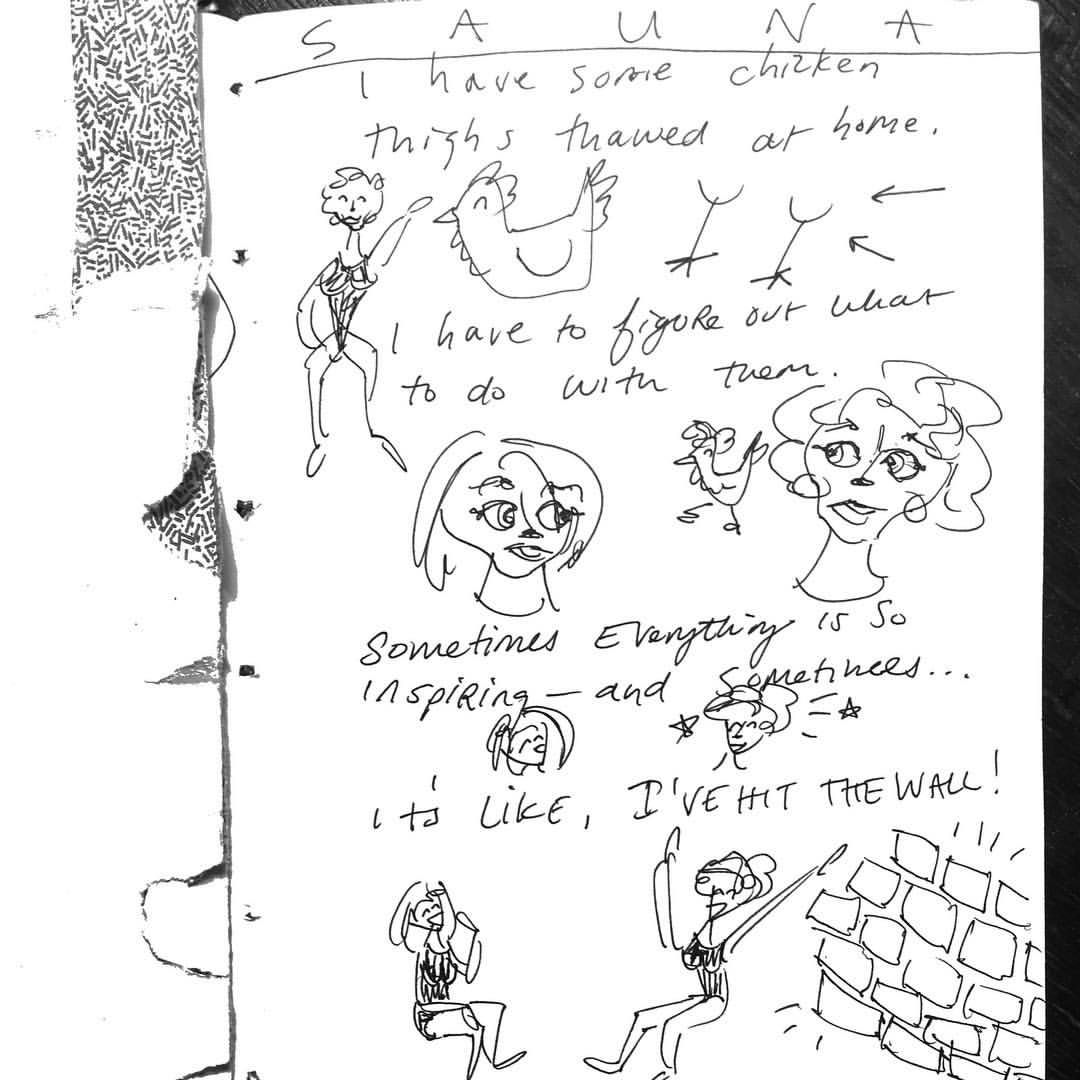 SAUNA
I have some chicken
thighs thawed at home.
I have to figure out what
to do with them.
Sometimes Everything is so
inspiring — and sometimes...
it's like, I'VE HIT THE WALL!